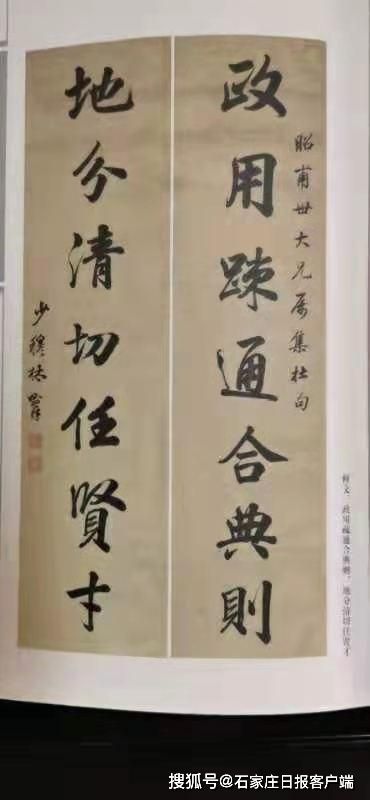 政用疎通合典則
昭甫世大兄属集杜句
地分清切任賢才
少穆林則徐
释文：政用疏通合典则，地分清切任贤才
搜狐号@石家庄日报客户端